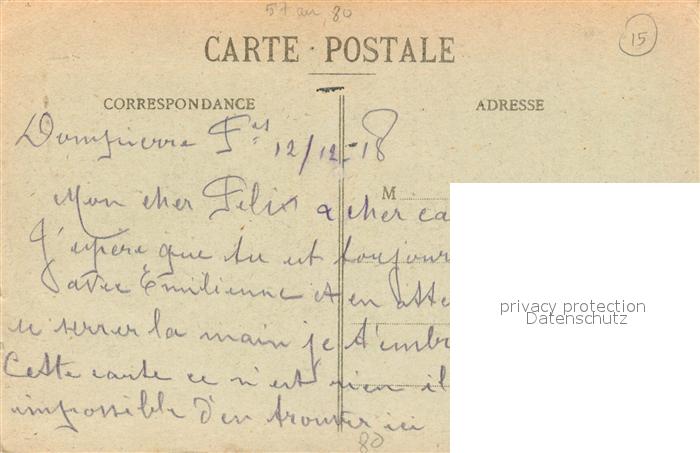 57 an, 80
15
CARTE POSTALE
CORRESPONDANCE
ADRESSE
Dompierre Fes 12/12-18
M
Mon cher Felix a cher ca
J'espère que tu est toujour
avec Émilienne et en atte
se serrer la main je t'embr
Cette carte ce n'est rien il
impossible d'en trouver ici
80
privacy protection
Datenschutz